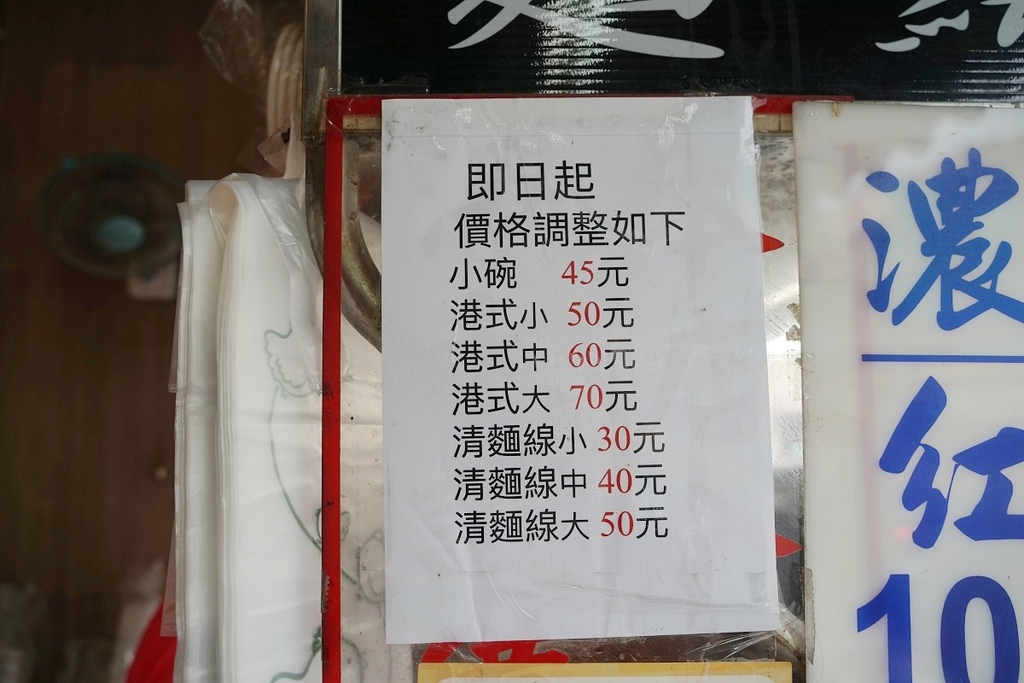 即日起
價格調整如下
小碗 45元
港式小 50元
港式中 60元
港式大 70元
清麵線小 30元
清麵線中 40元
清麵線大 50元
濃
紅
10